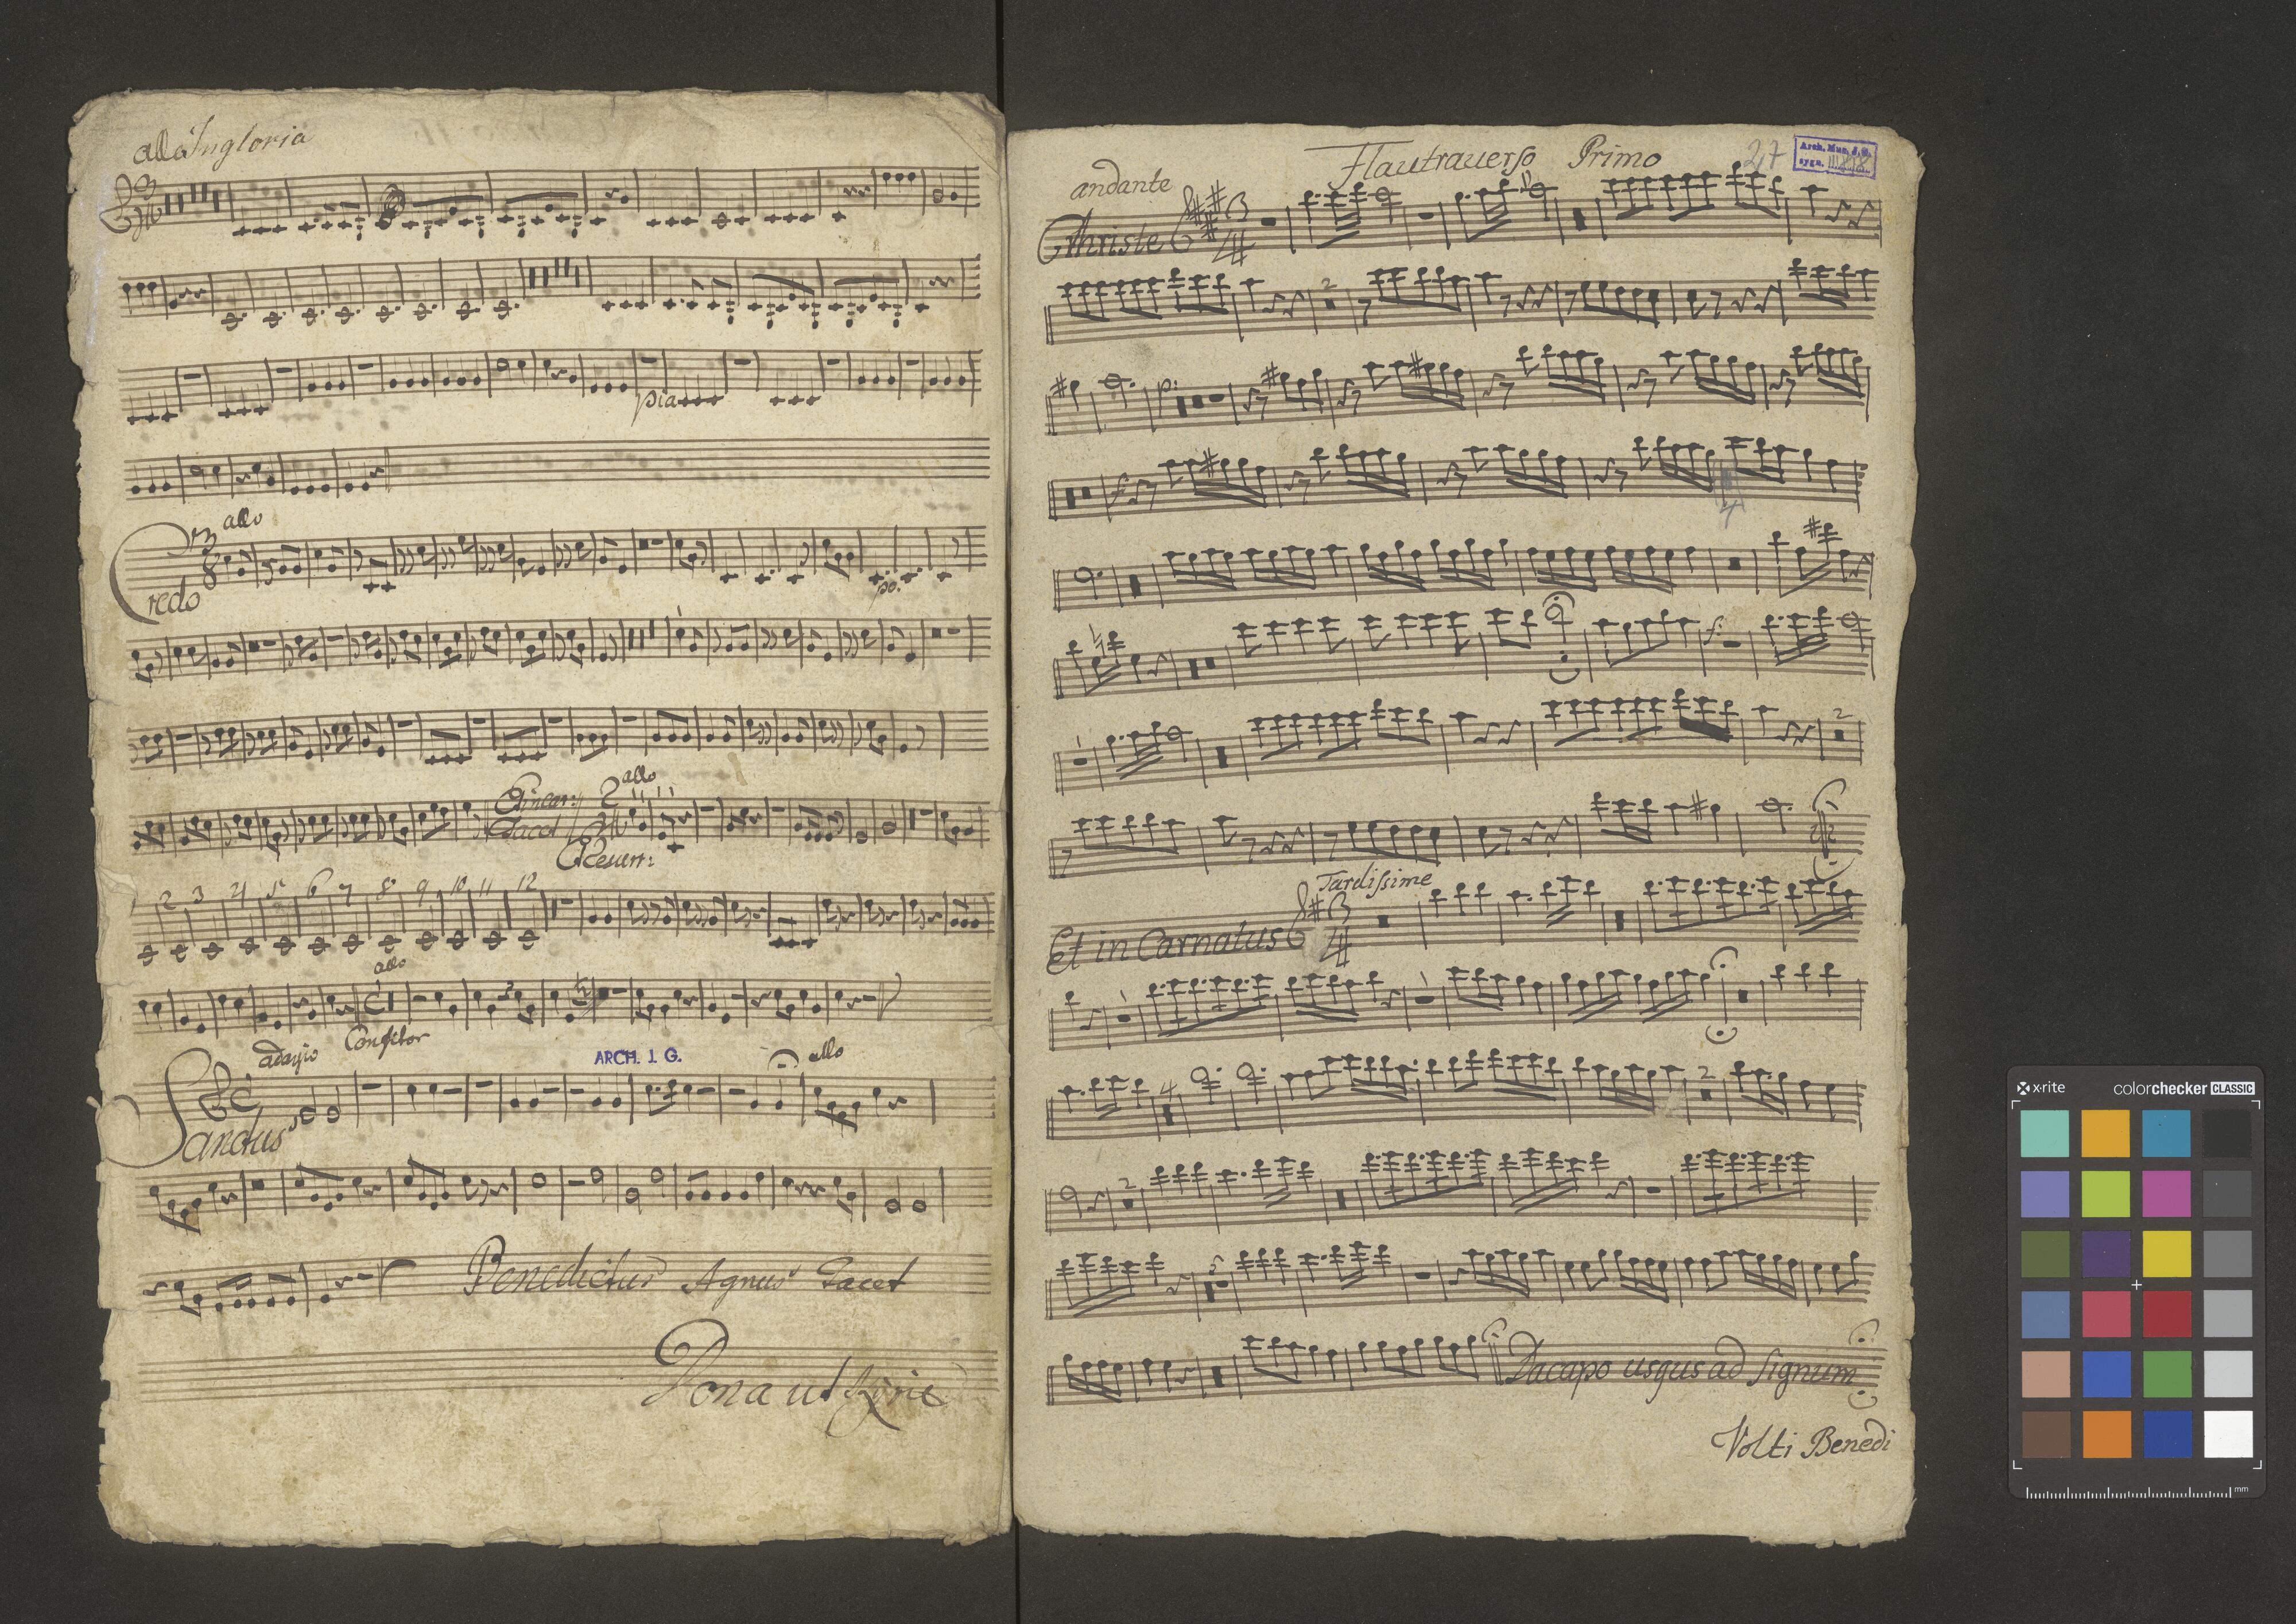 allo In gloria
pia
allo
Credo
po.
Et incar:
tacet
2
allo
Resurr:
2 3 4 5 6 7 8 9 10 11 12
allo
Confitor
adagio
ARCH. J. G.
allo
Sanctus
Benedictus Agnus Tacet
Dona ut Kyrie
Flautraverso Primo
27
Arch. Muz. J. G.
sygn. III
andante
Christe
3
4
2
p:
f
f:
2
Tardissime
Et in Carnatus
3
4
4
2
2
5
Dacapo usqus ad signum
Volti Benedi
x-rite
colorchecker CLASSIC
mm